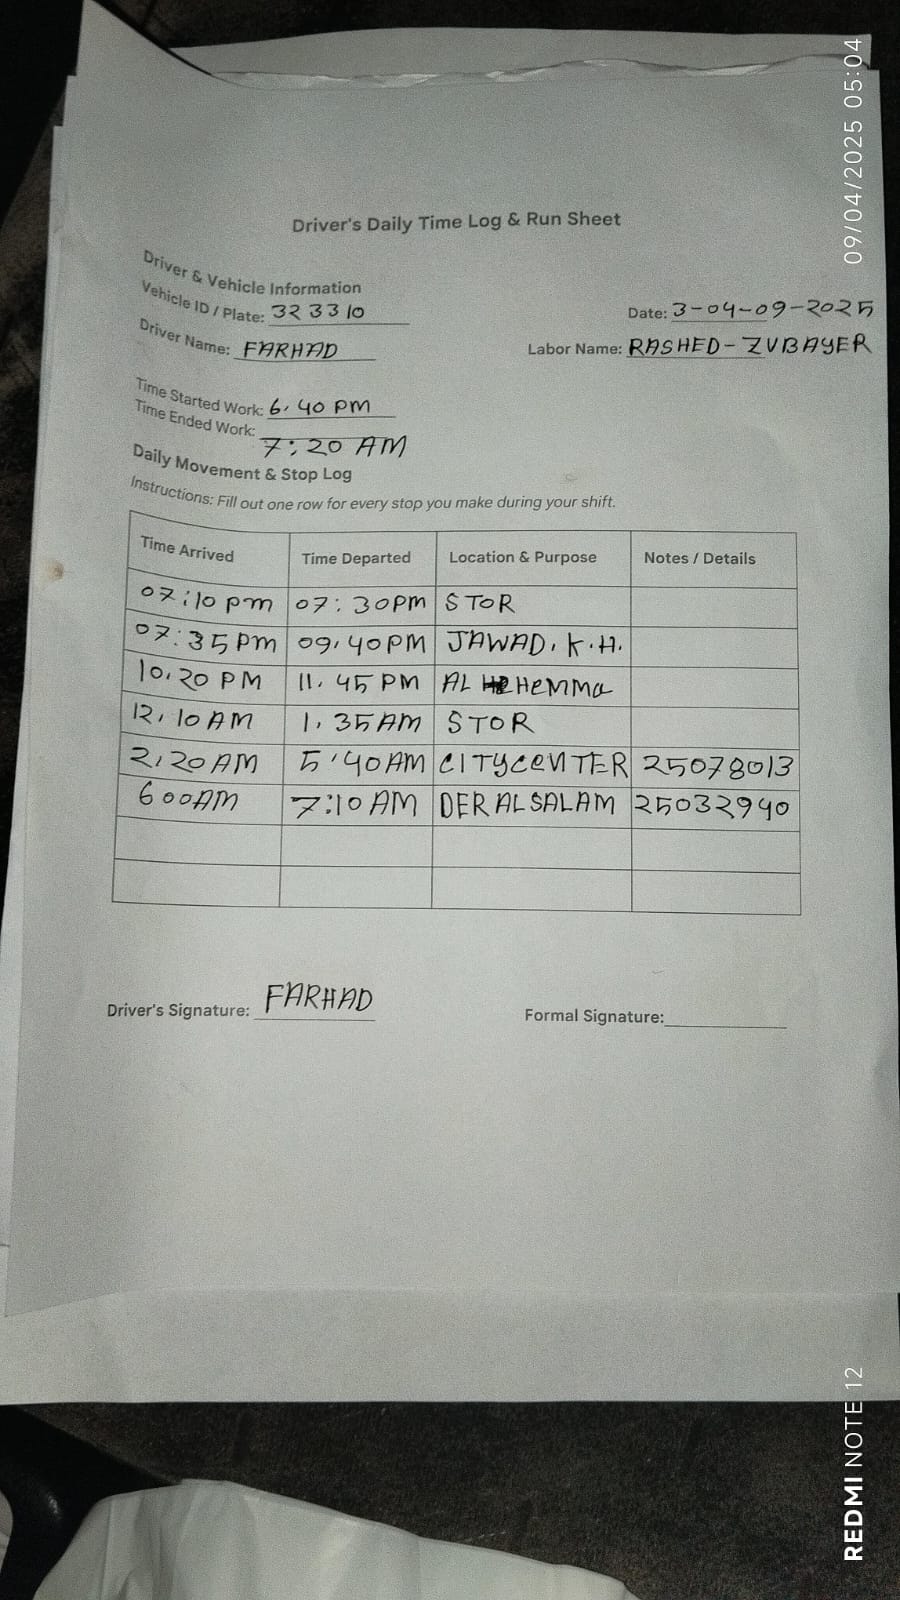 09/04/2025 05:04
Driver's Daily Time Log & Run Sheet
Driver & Vehicle Information
Vehicle ID / Plate: 323310
Date: 3-04-09-2025
Driver Name: FARHAD
Labor Name: RASHED- ZUBAYER
Time Started Work: 6. 40 PM
Time Ended Work: 7:20 AM
Daily Movement & Stop Log
Instructions: Fill out one row for every stop you make during your shift.
Time Arrived Time Departed Location & Purpose Notes / Details
07:10 pm 07:30PM STOR
07:35PM 09.40PM JAWAD. K.H.
10.20 PM 11. 45 PM AL HEMMa
12.10 AM 1. 35AM STOR
2.20AM 5'40AM CITYCENTER 25078013
600AM 7:10 AM DER ALSALAM 25032940
Driver's Signature: FARHAD
Formal Signature:
REDMI NOTE 12